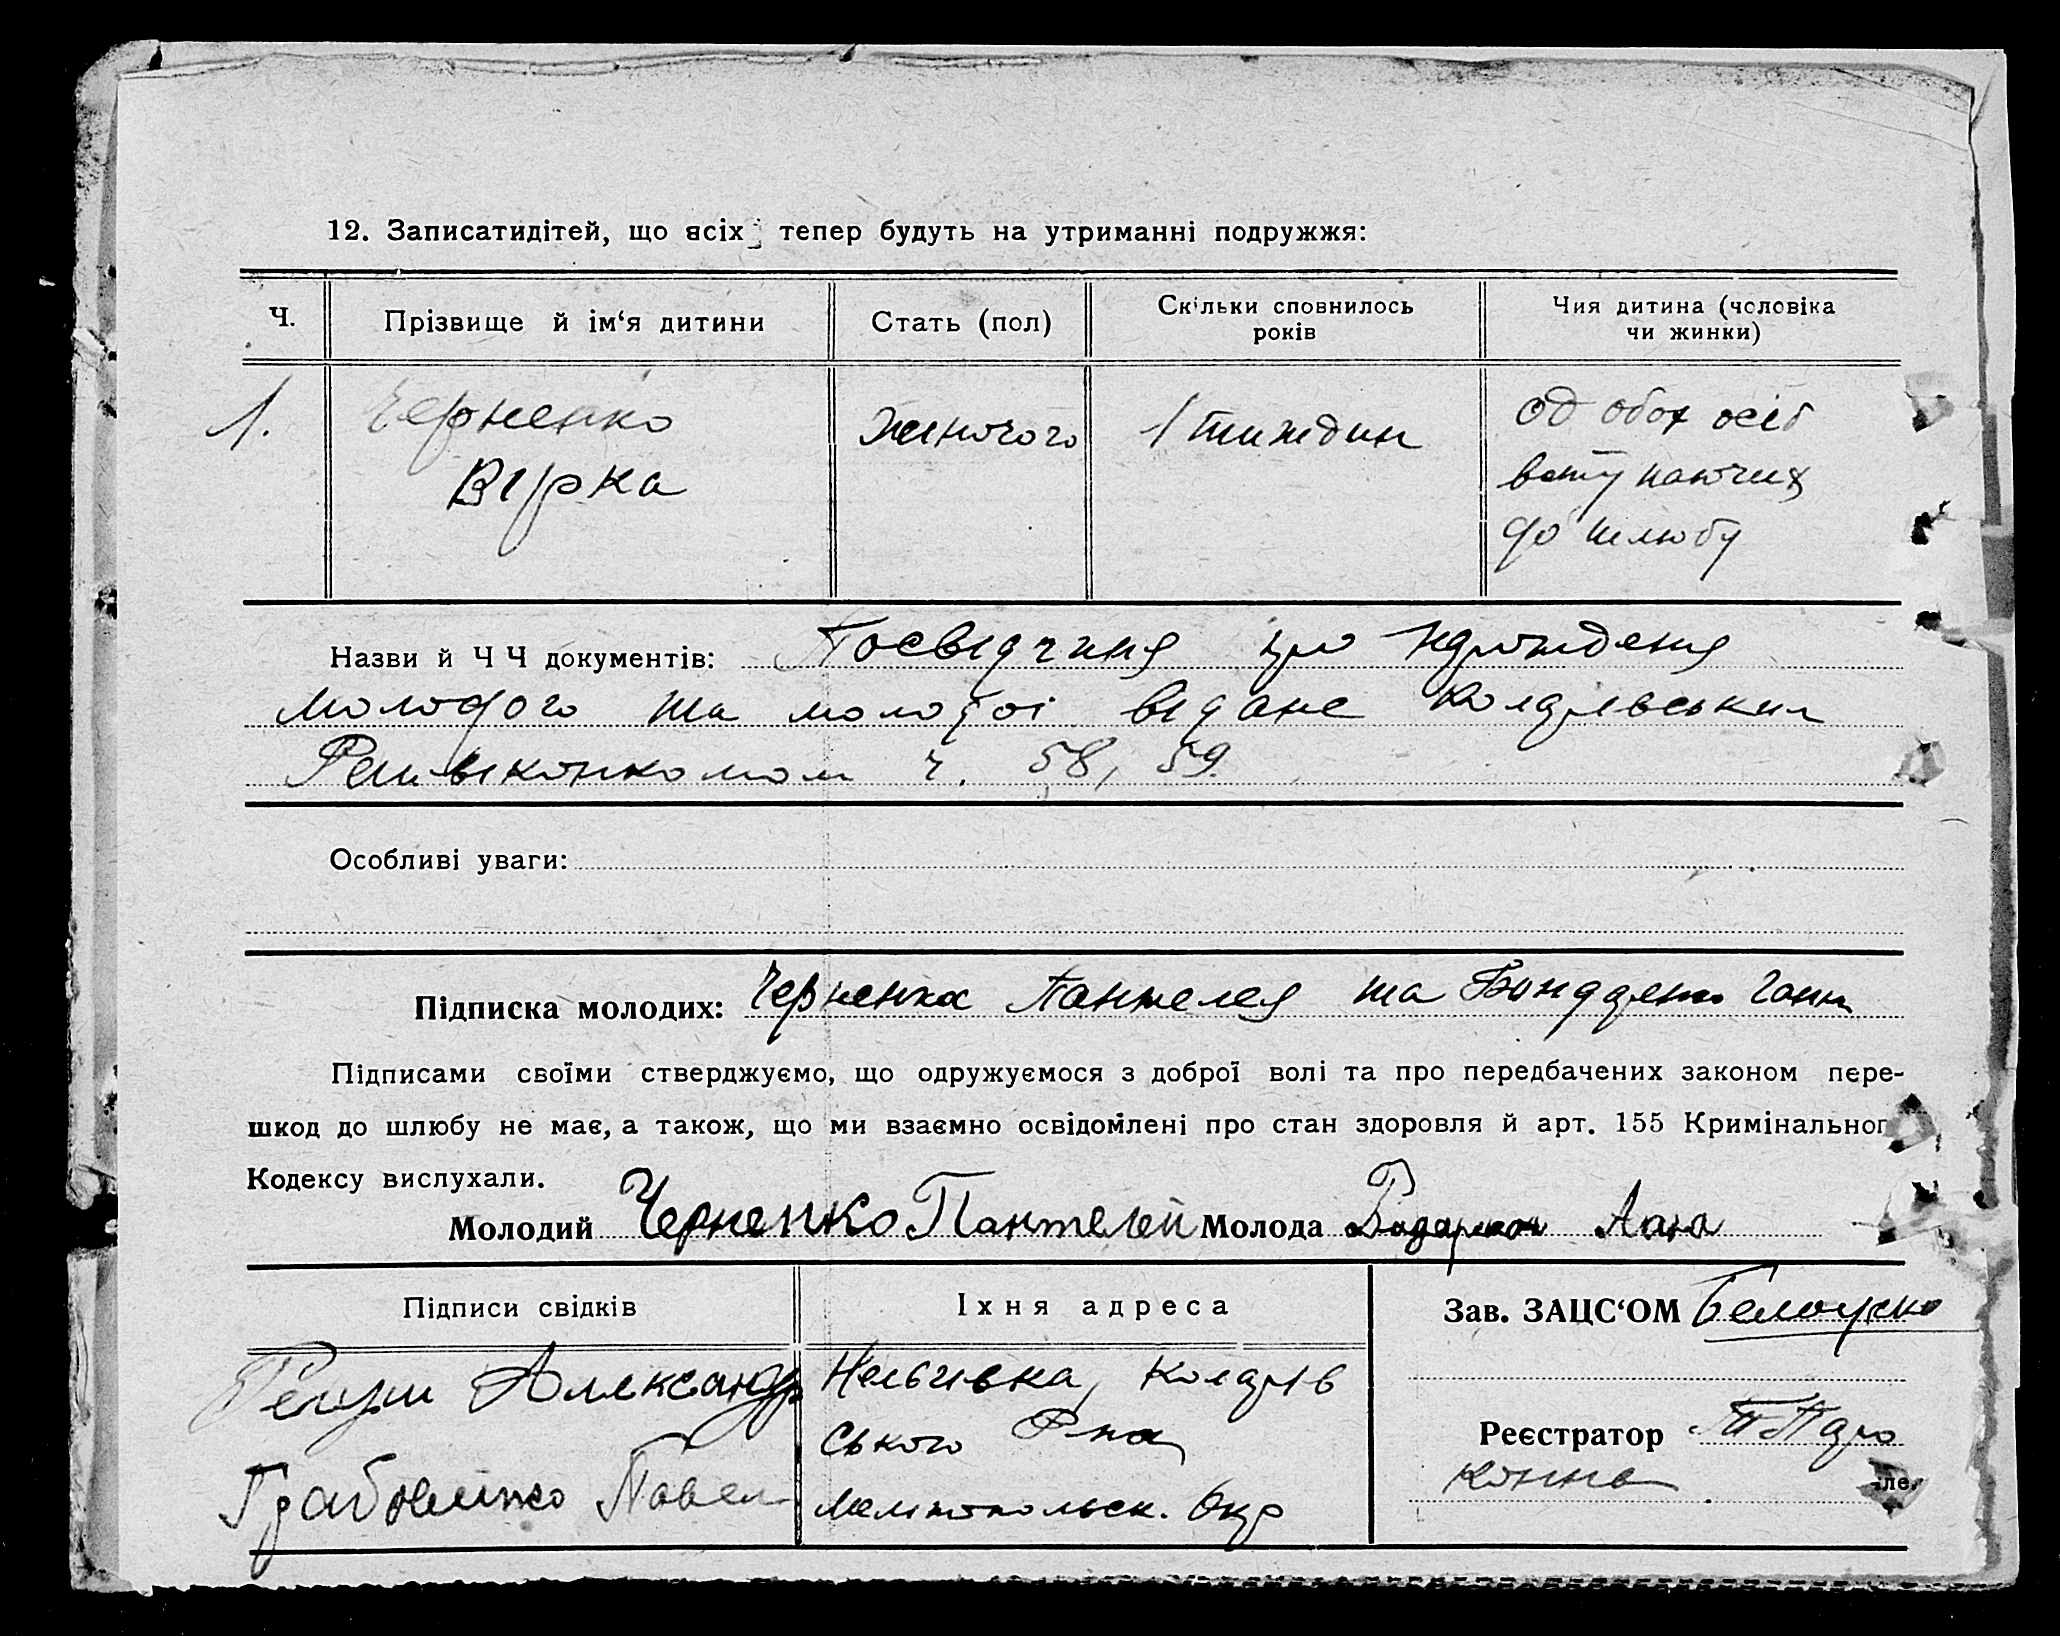 12. Записатидітей, що всіх тепер будуть на утриманні подружжя:
Ч.
Прізвище й ім‘я дитини
Стать (пол)
Скільки сповнилось
років
Чия дитина (чоловіка
чи жинки)
1.
Черненко
Вірка
жиночого
1 тиждин
од обох осіб
вступаючих
до шлюбу
Назви й Ч Ч документів: Посвідчиня про народженя
молодого та молодоі відане
ч. 58, 59.
Особливі уваги:
Підписка молодих: Черненка Пантелея та Ганн
Підписами своїми стверджуємо, що одружуємося з доброї волі та про передбачених законом пере-
шкод до шлюбу не має, а також, що ми взаємно освідомлені про стан здоровля й арт. 155 Кримінальног
Кодексу вислухали.
Молодий Черненко Пантелей Молода Анна
Підписи свідків
Іхня адреса
Зав. ЗАЦС‘ОМ
Александр
ського Р-на
Мелітопольск. Окр
Павел
Реєстратор